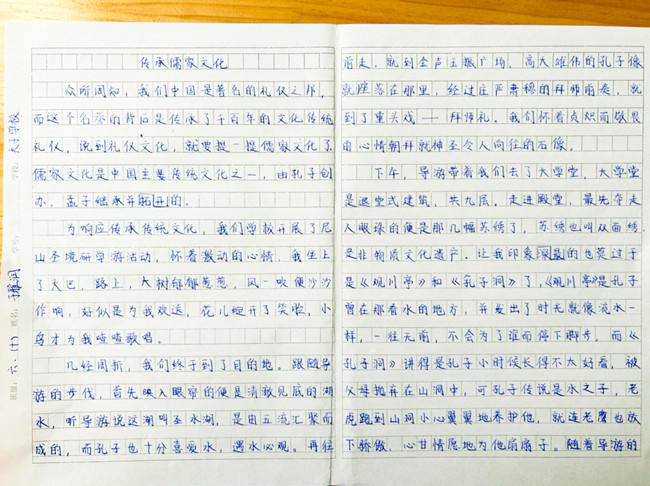 传承儒家文化
众所周知，我们中国是著名的礼仪之邦，
而这个名誉的背后是传承了千百年的文化传统
礼仪，说到礼仪文化，就要提一提儒家文化了
儒家文化是中国主要传统文化之一，由孔子创
办，孟子继承并拓开的。
为响应传承传统文化，我们学校开展了尼
山圣境研学游活动，怀着激动的心情，我坐上
了大巴，路上，大树郁郁葱葱，风一吹便沙沙
作响，好似是为我欢送，花儿绽开了笑脸，小
鸟才为我喳喳歌唱。
几经周折，我们终于到了目的地。跟随导
游的步伐，首先映入眼帘的便是清澈见底的湖
水，听导游说这湖叫圣水湖，是由五流汇聚而
成的，而孔子也十分喜爱水，遇水必观。再往
学校：
学号：
姓名：
班级：六·（十）
前走，就到金声玉振广场，高大雄伟的孔子像
就座落在那里，经过庄严肃穆的拜师前奏，就
到了重头戏——拜师礼。我们怀着炽而敬畏
由心情朝拜就神圣令人向往的石像。
下午，导游带着我们去了大学堂，大学堂
是退室式建筑，共九层。走进殿堂，最先夺走
人眼球的便是那几幅苏绣了，苏绣也叫双面绣
是非物质文化遗产。让我印象深最的也莫过于
是《观川亭》和《孔子洞》了，《观川亭》是孔子
曾在那看水的地方，并发出了时光就像流水一
样，一往无前，不会为了谁而停下脚步，而《
孔子洞》讲得是孔子小时候长得不太好看，被
父母抛弃在山洞中，可孔子传说是水之子，老
虎跑到山洞小心翼翼地养护他，就连老鹰也放
下骄傲，心甘情愿地为他扇扇子。随着导游的